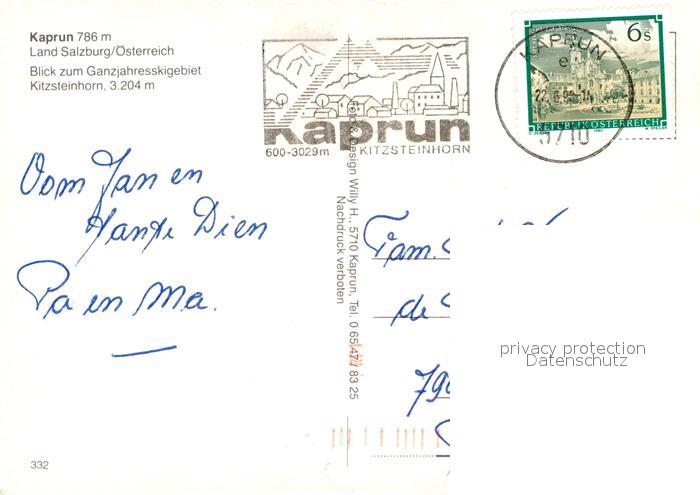 Kaprun 786 m
Land Salzburg/Österreich
Blick zum Ganzjahresskigebiet
Kitzsteinhorn, 3.204 m
Kaprun
600-3029m KITZSTEINHORN
6s
REPUBLIK ÖSTERREICH
KAPRUN
e
5710
Oom Jan en
Tante Dien
Pa en Ma.
Foto & Design Willy H., 5710 Kaprun, Tel. 0 65 47 / 83 25
Nachdruck verboten
Fam.
de
privacy protection
Datenschutz
332